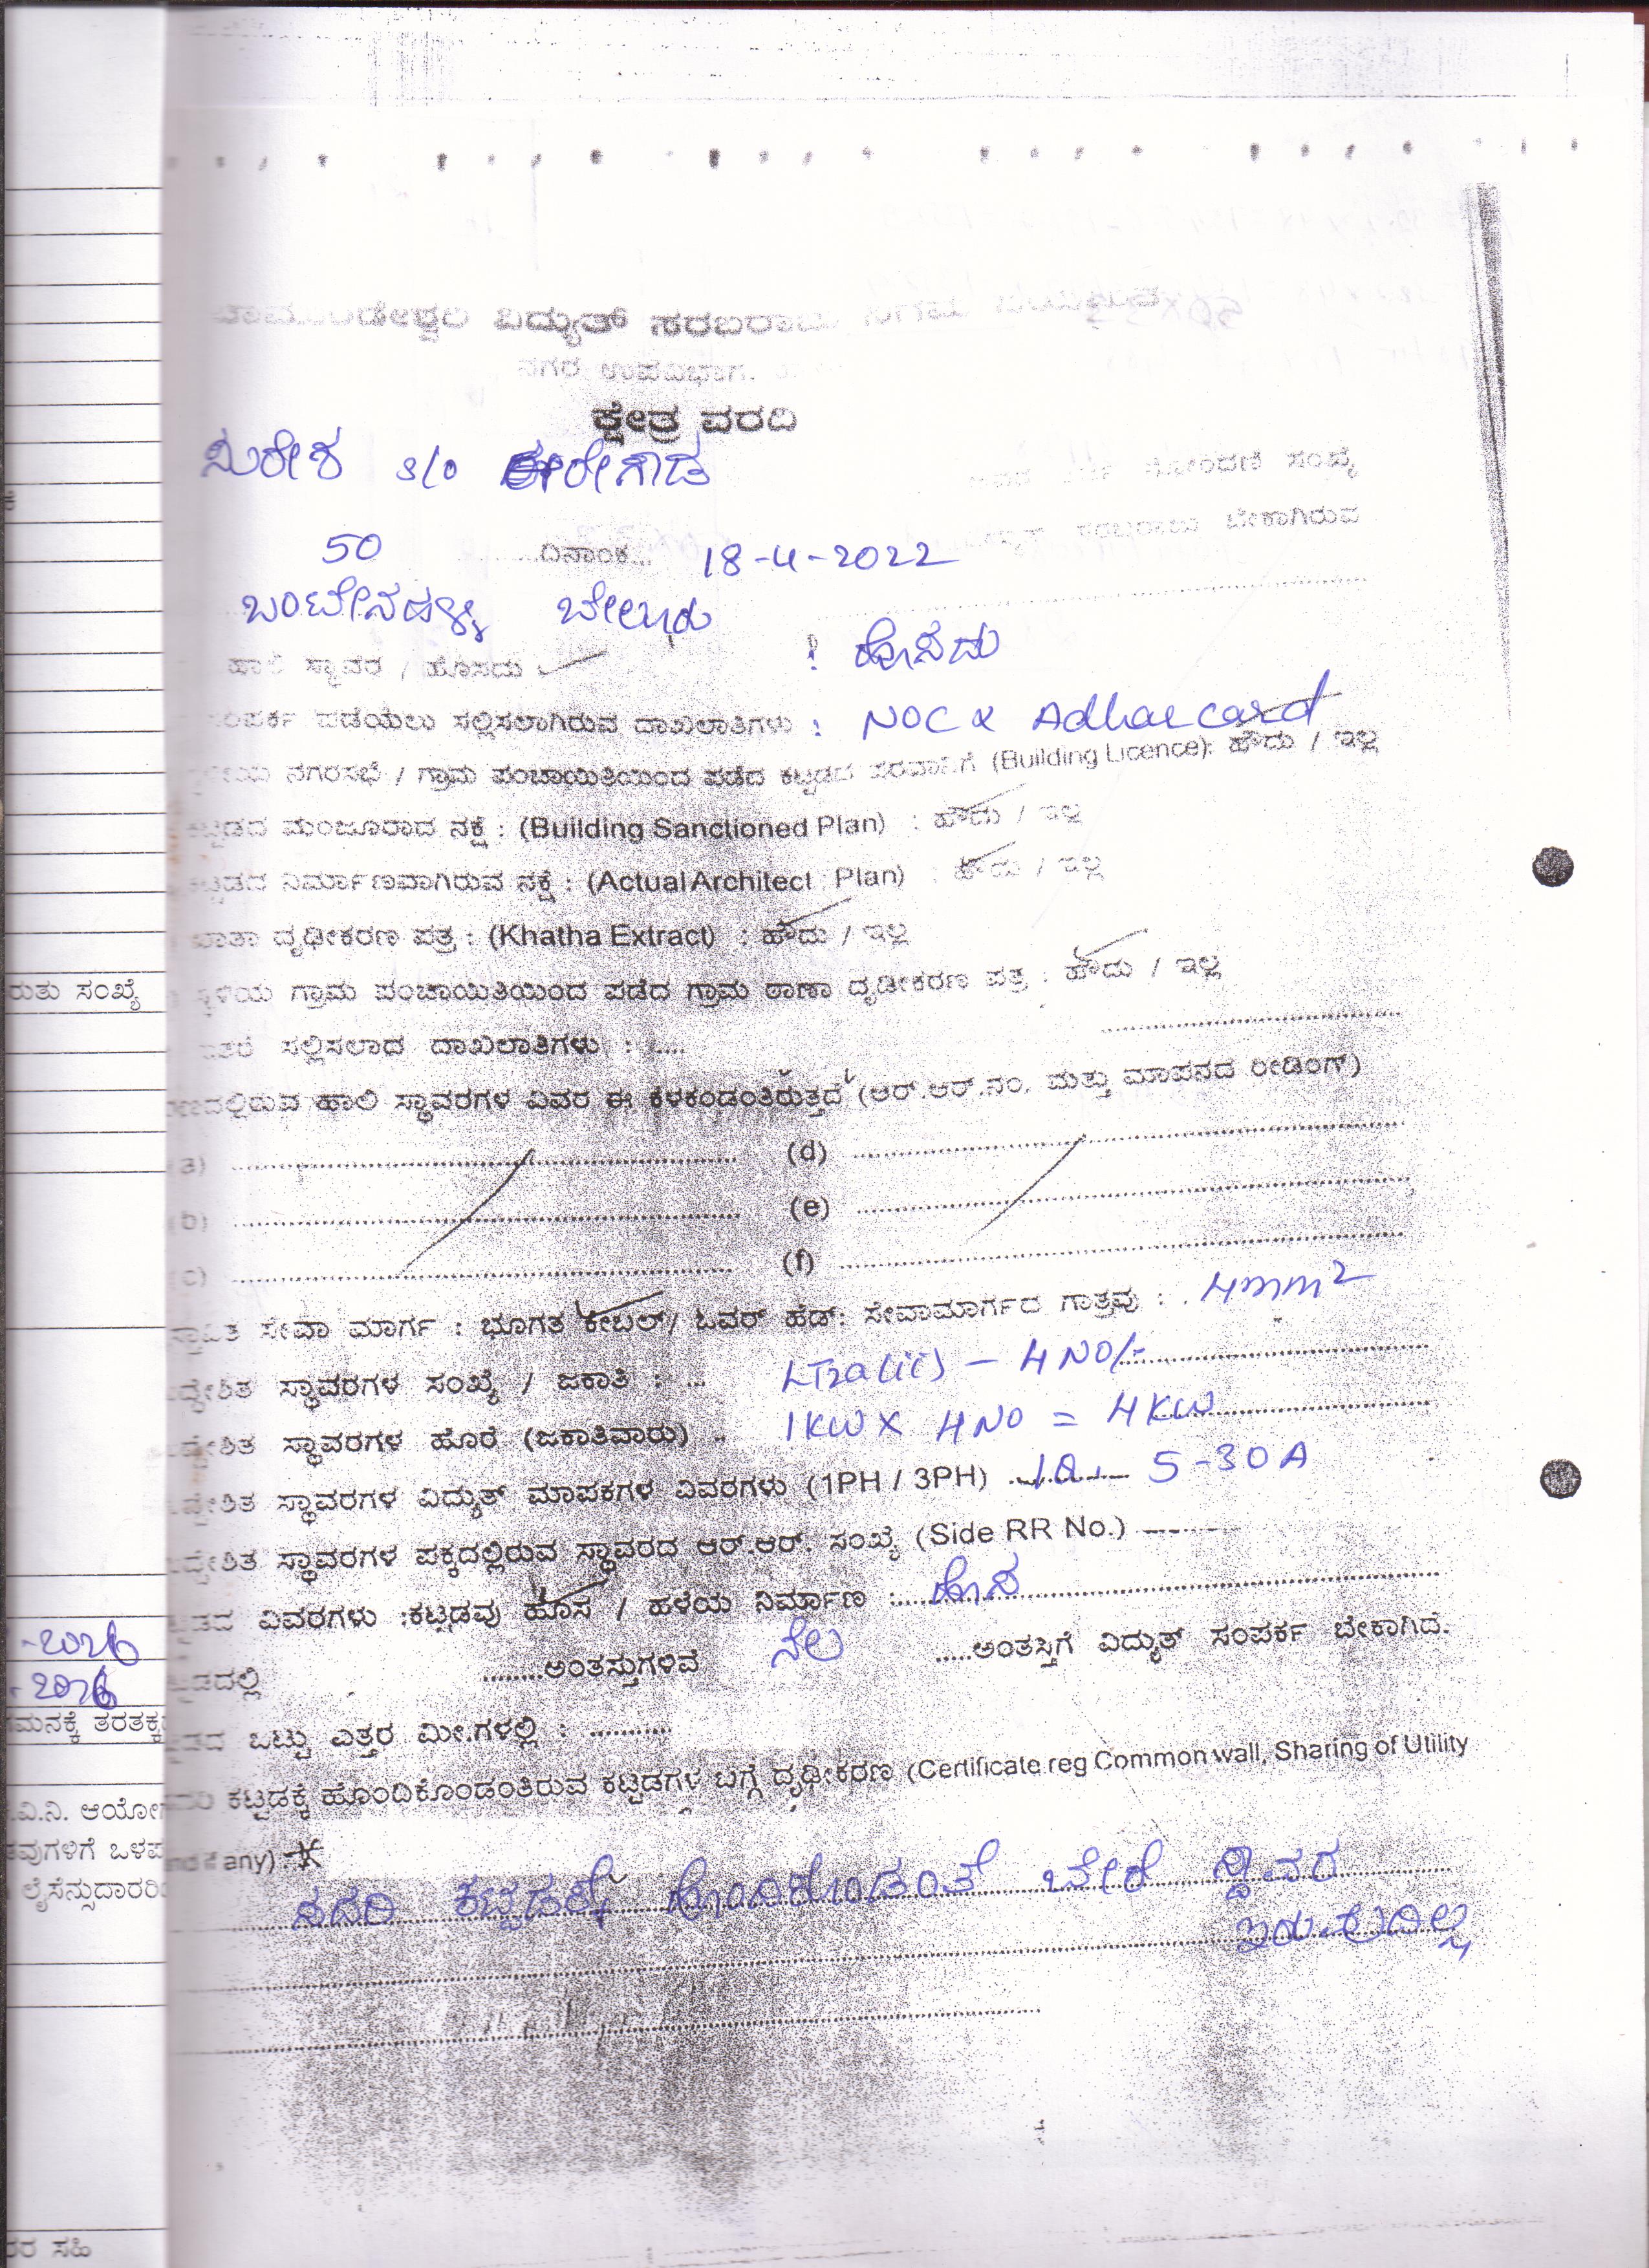 ವಿದ್ಯುತ್ ಸರಬರಾಜು ನಿಗಮ
ನಗರ ಉಪವಿಭಾಗ.
ಕ್ಷೇತ್ರ ವರದಿ
s/o
ನೋಂದಣಿ ಸಂಖ್ಯೆ
ಸರಬರಾಜು ಬೇಕಾಗಿರುವ
50 ದಿನಾಂಕ... 18-4-2022
ಬಂಟೇನಹಳ್ಳಿ ಬೇಲೂರು
ಹಾಲಿ ಸ್ಥಾವರ / ಹೊಸದು : ಹೊಸದು
ಸಂಪರ್ಕ ಪಡೆಯಲು ಸಲ್ಲಿಸಲಾಗಿರುವ ದಾಖಲಾತಿಗಳು : NOC & Adhar card
ನಗರಸಭೆ / ಗ್ರಾಮ ಪಂಚಾಯಿತಿಯಿಂದ ಪಡೆದ ಕಟ್ಟಡದ ಪರವಾನಿಗೆ (Building Licence): ಹೌದು / ಇಲ್ಲ
ಕಟ್ಟಡದ ಮಂಜೂರಾದ ನಕ್ಷೆ : (Building Sanctioned Plan) : ಹೌದು / ಇಲ್ಲ
ಕಟ್ಟಡದ ನಿರ್ಮಾಣವಾಗಿರುವ ನಕ್ಷೆ : (Actual Architect Plan) : ಹೌದು / ಇಲ್ಲ
ಖಾತಾ ದೃಢೀಕರಣ ಪತ್ರ : (Khatha Extract) : ಹೌದು / ಇಲ್ಲ
ಗ್ರಾಮ ಪಂಚಾಯಿತಿಯಿಂದ ಪಡೆದ ಗ್ರಾಮ ಠಾಣಾ ದೃಡೀಕರಣ ಪತ್ರ : ಹೌದು / ಇಲ್ಲ
ಇತರೆ ಸಲ್ಲಿಸಲಾದ ದಾಖಲಾತಿಗಳು : ....
ಹಾಲಿ ಸ್ಥಾವರಗಳ ವಿವರ ಈ ಕೆಳಕಂಡಂತಿರುತ್ತದೆ (ಆರ್.ಆರ್.ನಂ. ಮತ್ತು ಮಾಪನದ ರೀಡಿಂಗ್)
(a) (d)
(b) (e)
(c) (f)
ಸೇವಾ ಮಾರ್ಗ : ಭೂಗತ ಕೇಬಲ್/ ಓವರ್ ಹೆಡ್: ಸೇವಾಮಾರ್ಗದ ಗಾತ್ರವು : 4mm2
ಸ್ಥಾವರಗಳ ಸಂಖ್ಯೆ / ಜಕಾತಿ : ... LT2a(ii) - 4 NO/-
ಸ್ಥಾವರಗಳ ಹೊರೆ (ಜಕಾತಿವಾರು) .. 1KW X 4NO = 4KW
ಸ್ಥಾವರಗಳ ವಿದ್ಯುತ್ ಮಾಪಕಗಳ ವಿವರಗಳು (1PH / 3PH) 5-30A
ಸ್ಥಾವರಗಳ ಪಕ್ಕದಲ್ಲಿರುವ ಸ್ಥಾವರದ ಆರ್.ಆರ್. ಸಂಖ್ಯೆ (Side RR No.)
ವಿವರಗಳು :ಕಟ್ಟಡವು ಹೊಸ / ಹಳೆಯ ನಿರ್ಮಾಣ : ಹೊಸ
ಅಂತಸ್ತುಗಳಿವೆ ನೆಲ .....ಅಂತಸ್ತಿಗೆ ವಿದ್ಯುತ್ ಸಂಪರ್ಕ ಬೇಕಾಗಿದೆ.
ಒಟ್ಟು ಎತ್ತರ ಮೀ.ಗಳಲ್ಲಿ : ...........
ಕಟ್ಟಡಕ್ಕೆ ಹೊಂದಿಕೊಂಡಂತಿರುವ ಕಟ್ಟಡಗಳ ಬಗ್ಗೆ ದೃಢೀಕರಣ (Certificate reg Common wall, Sharing of Utility
any)
ಸದರಿ ಕಟ್ಟಡಕ್ಕೆ ಹೊಂದಿಕೊಂಡಂತೆ ಬೇರೆ ಸ್ಥಾವರ
ಇರುವುದಿಲ್ಲ
ಸಂಖ್ಯೆ
ಸಹಿ